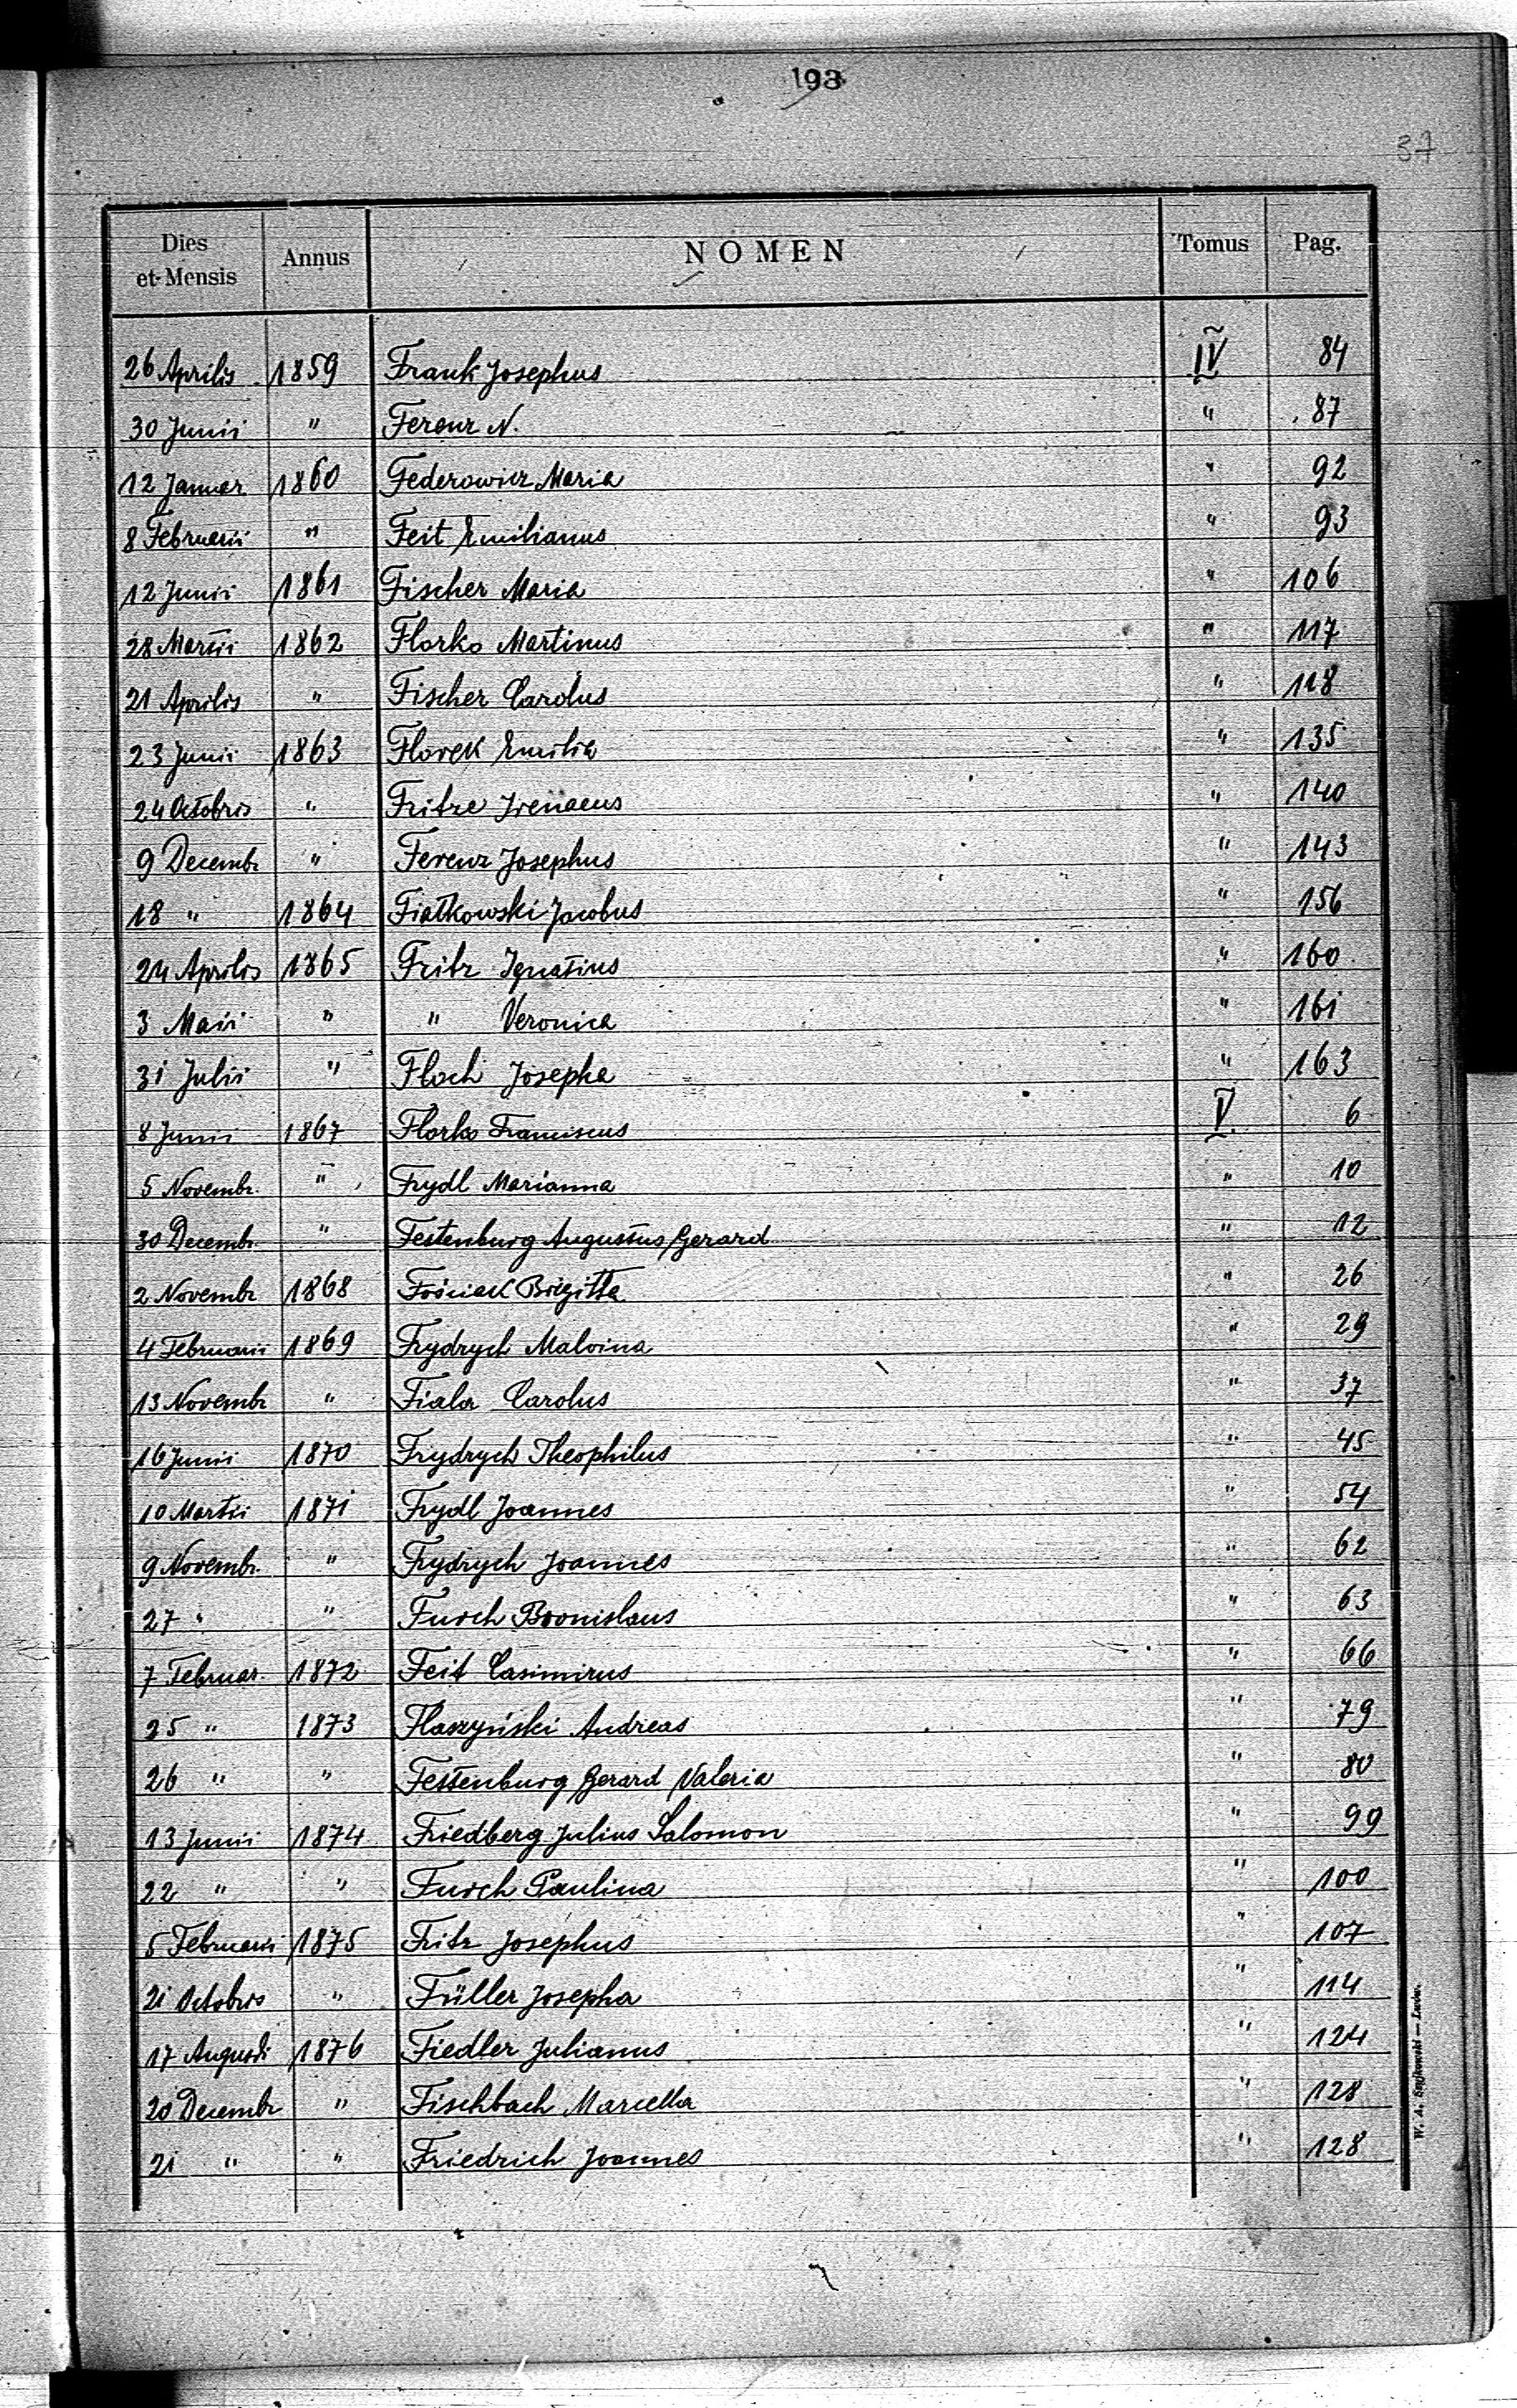 193
37
Dies et Mensis Annus NOMEN Tomus Pag.
26 Aprilis 1859 Frank Josephus IV 84
30 Junii " Ferenz N. " 87
12 Januar 1860 Federowicz Maria " 92
8 Februarii " Feit Emilianus " 93
12 Junii 1861 Fischer Maria " 106
28 Martii 1862 Florko Martinus " 117
21 Aprilis " Fischer Carolus " 118
23 Junii 1863 Florek Emilia " 135
24 Octobris " Fritze Irenaeus " 140
9 Decembr " Ferenz Josephus " 143
18 " 1864 Fiałkowski Jacobus " 156
24 Aprilis 1865 Fritz Ignatius " 160
3 Maii " " Veronica " 161
31 Julii " Floch Josepha " 163
8 Junii 1867 Florko Franciscus V 6
5 Novembr. " Frydl Marianna " 10
30 Decembr. " Festenburg Augustus Gerard " 12
2 Novembr 1868 Fościak Brigitta " 26
4 Februarii 1869 Frydrych Malvina " 29
13 Novembr " Fiala Carolus " 37
16 Junii 1870 Frydrych Theophilus " 45
10 Martii 1871 Frydl Joannes " 54
9 Novembr. " Frydrych Joannes " 62
27 " " Furch Bronislaus " 63
7 Februar. 1872 Feit Casimirus " 66
25 " 1873 Flaszyński Andreas " 79
26 " " Festenburg Gerard Valeria " 80
13 Junii 1874 Friedberg Julius Salomon " 99
22 " " Furch Paulina " 100
5 Februarii 1875 Fritz Josephus " 107
21 Octobris " Füller Josepha " 114
17 Augusti 1876 Fiedler Julianus " 124
20 Decembr " Fischbach Marcella " 128
21 " " Friedrich Joannes " 128